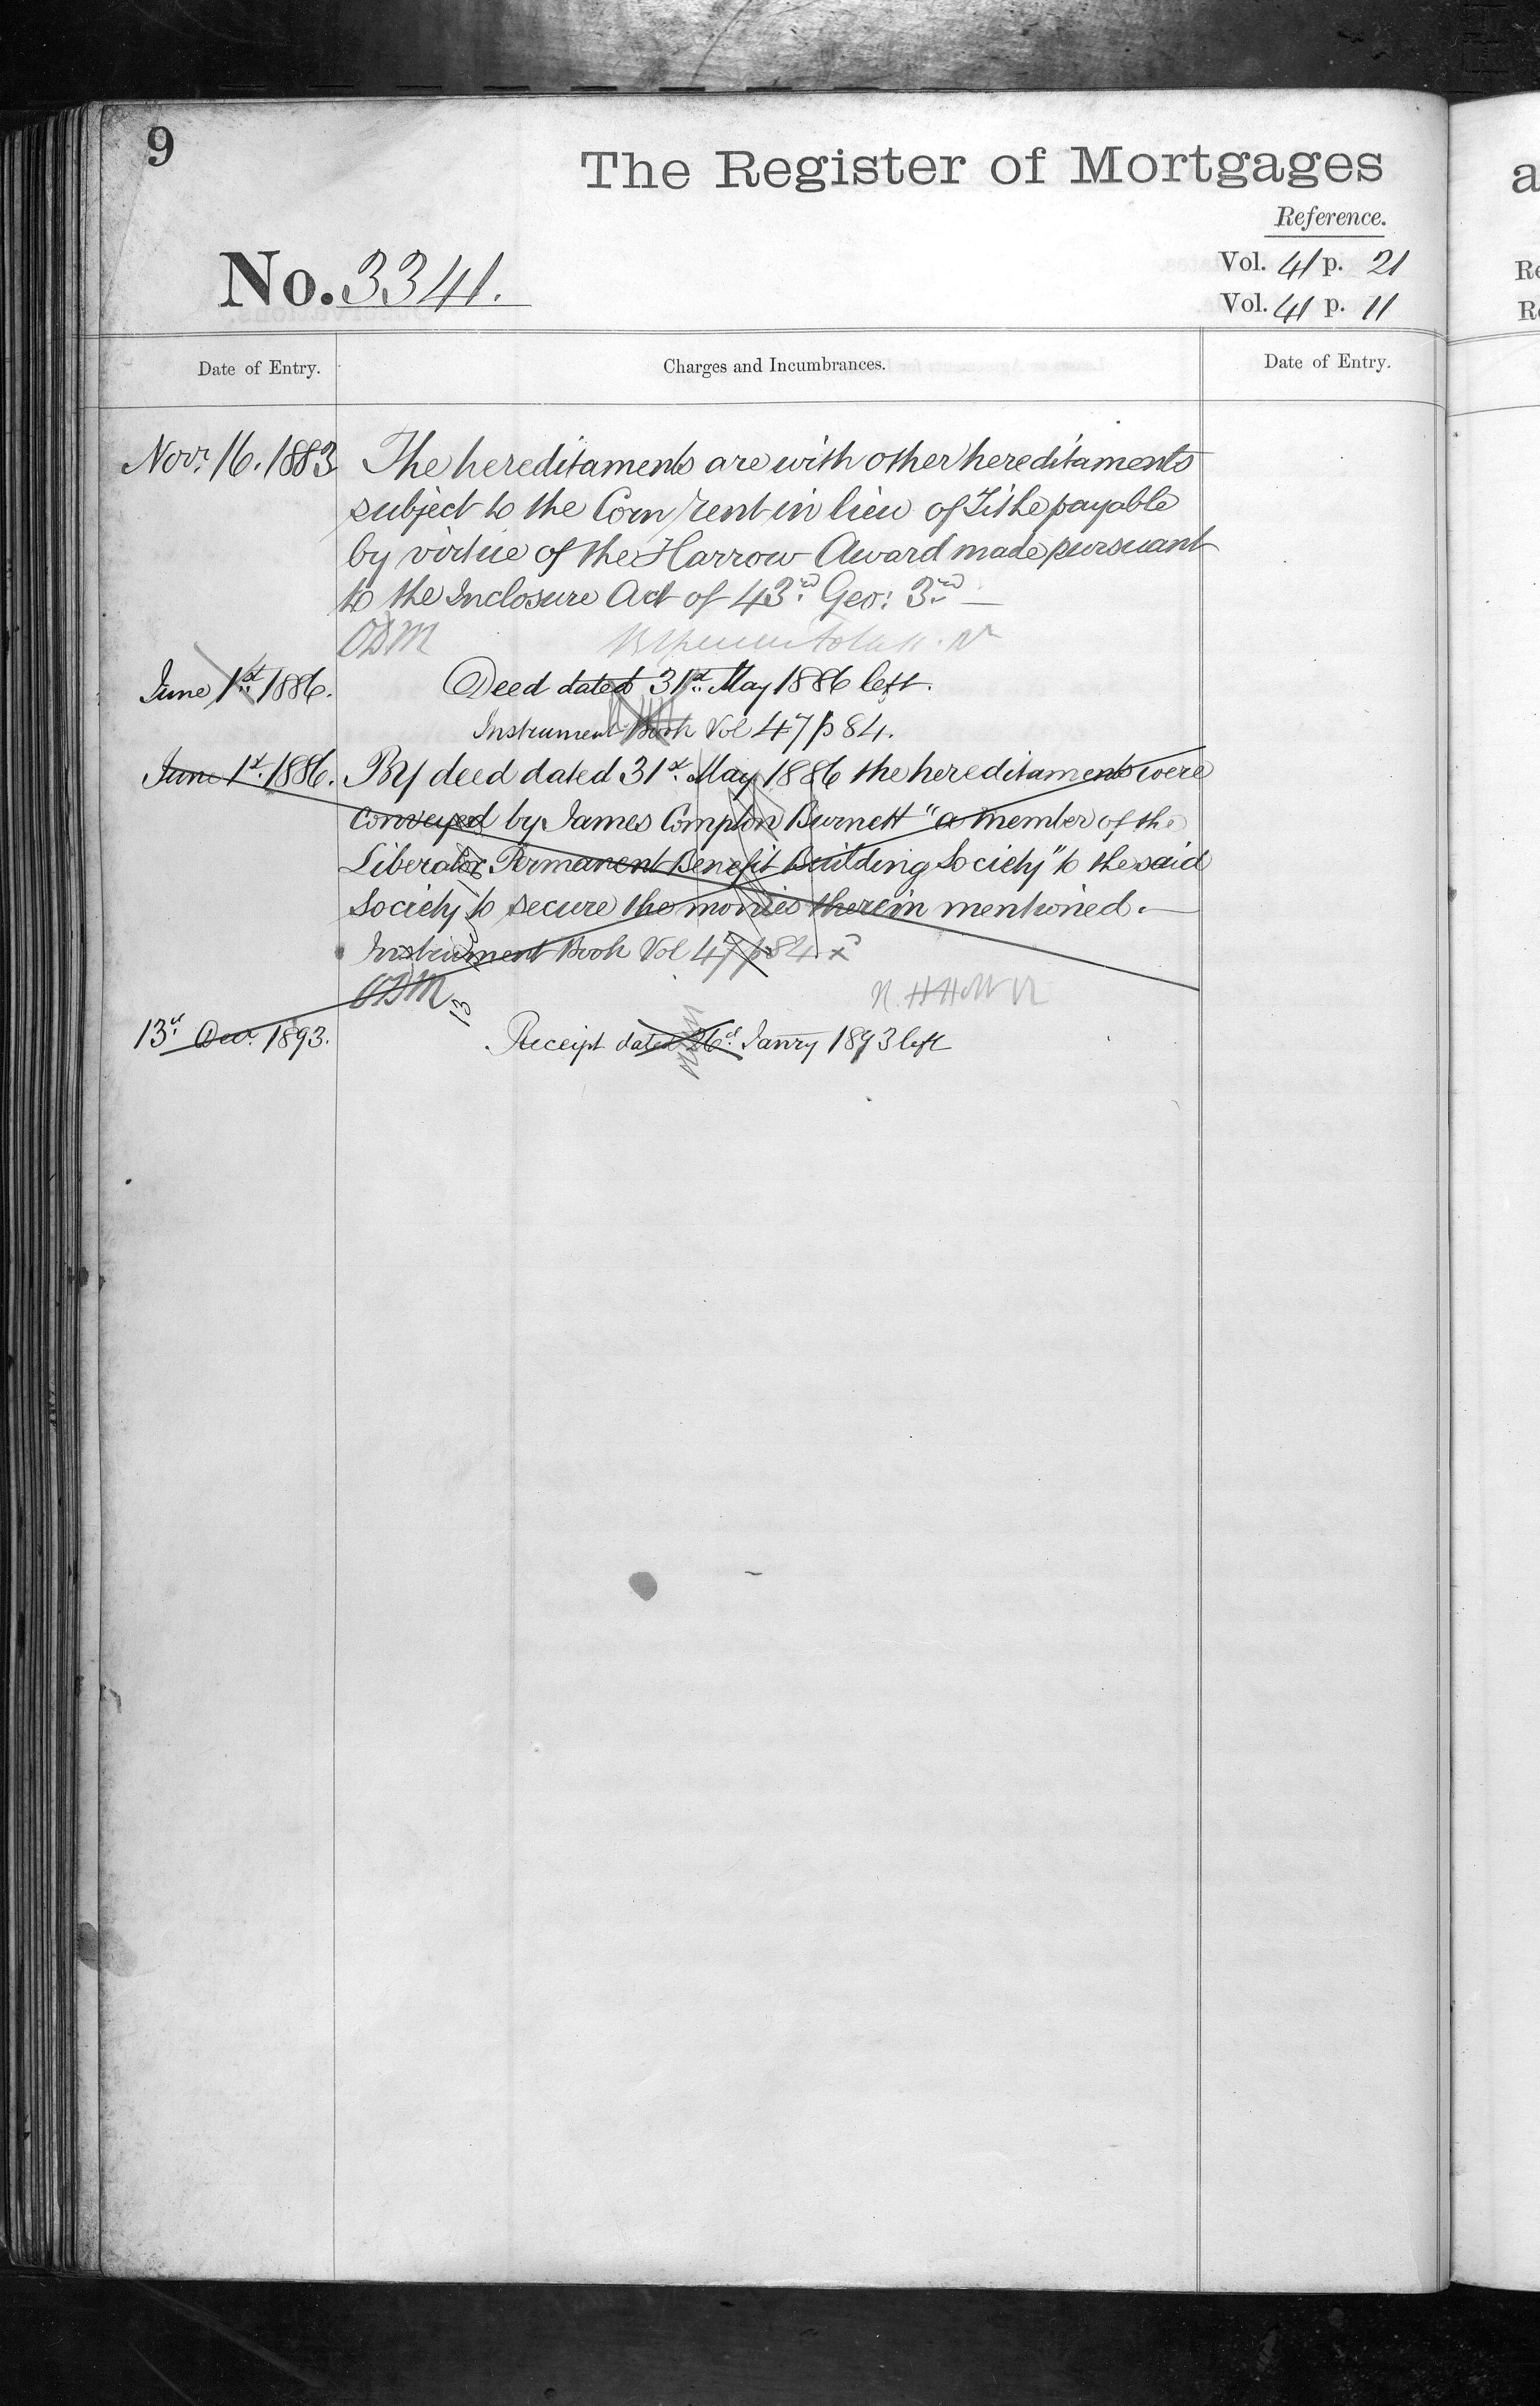 9
The Register of Mortgages
Reference.
No. 3341.
Vol. 41 p. 21
Vol. 41 p. 11
Date of Entry.
Charges and Incumbrances.
Date of Entry.
Novr. 16. 1883
The hereditaments are with other hereditaments
subject to the Corn rent in lieu of Tithe payable
by virtue of the Harrow Award made pursuant
to the Inclosure Act of 43rd Geo: 3rd —
ODM
June 1st 1886.
Deed dated 31st May 1886 left.
Instrument Book Vol 47 p 84.
June 1st. 1886.
By deed dated 31st. May 1886 the hereditaments were
conveyed by James Compton Burnett "a member of the
Liberator Permanent Benefit Building Society" to the said
Society to secure the monies therein mentioned. —
Instrument Book Vol 47 p 84
ODM
13
13th Decr. 1893.
Receipt dated 26th Janry 1893 left
a
Re
Re